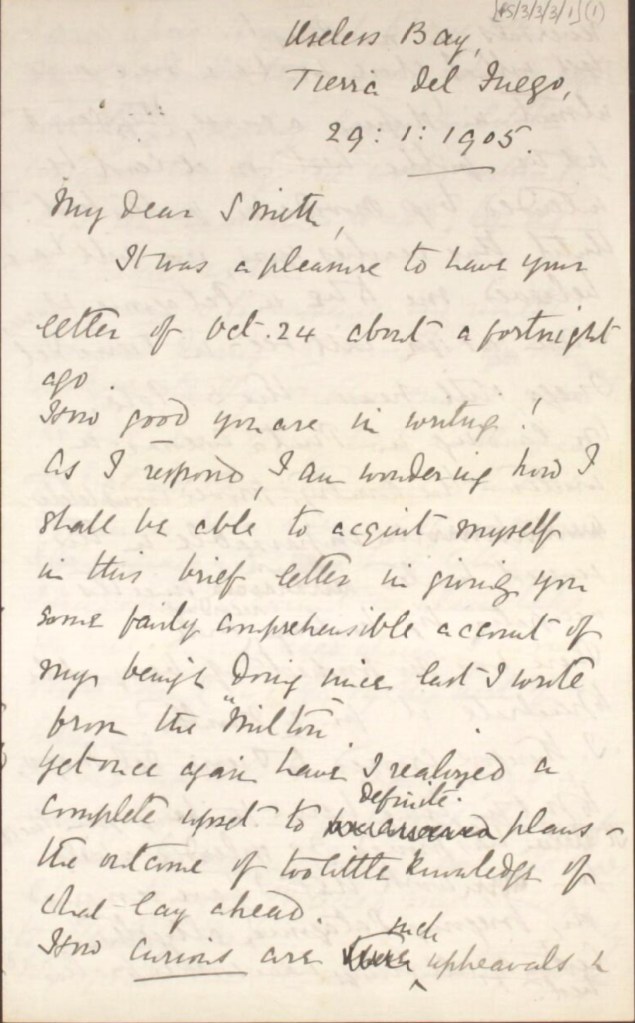 Useless Bay,
Tierra del Fuego,
29: 1: 1905.
My dear Smith,
It was a pleasure to have your
letter of Oct. 24 about a fortnight
ago.
How good you are in writing!
As I respond, I am wondering how I
shall be able to acquit myself
in this brief letter in giving you
some fairly comprehensible account of
my being & doing since last I wrote
from the "Milton"
Yet once again have I realized a
definite
complete upset to plans -
the outcome of too little knowledge of
what lay ahead.
such
How curious are upheavals